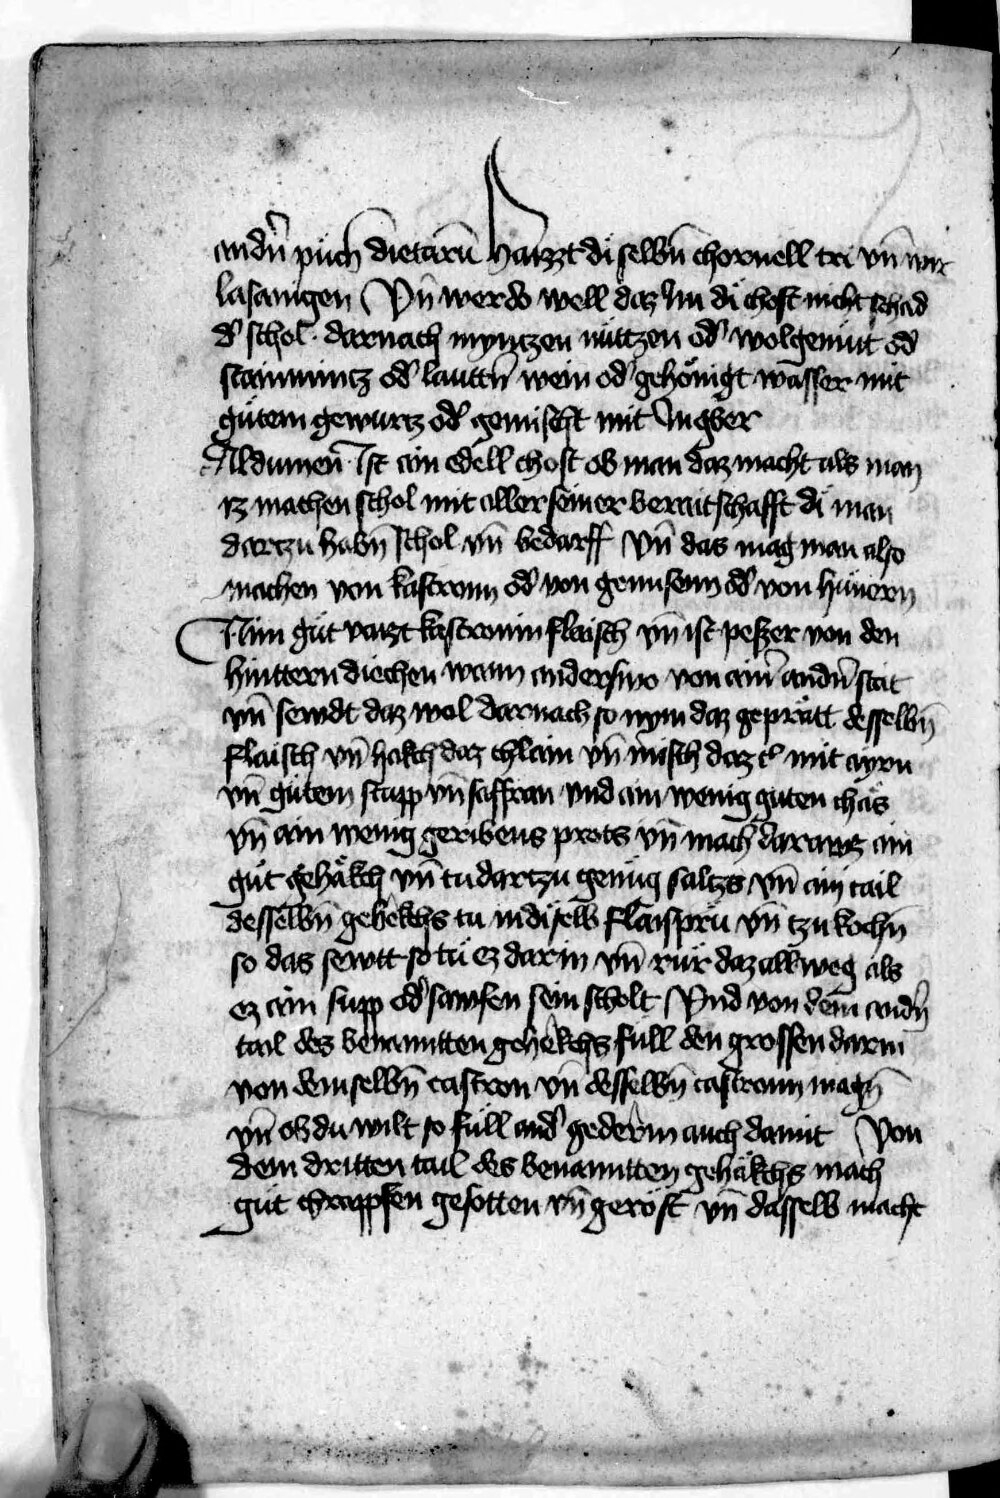 andn̄ püch dietarū haizzt di selbn̄ chornell tri vn̄ wir
lasanigen Vn̄ werdo well daz Im di chost nicht schad
d' schol · darnach myntzen nuttzen od' wolgemüt od'
stainmintz od' lauttn̄ wein od' gehönigt wasser mit
gütem gewurtz od' gemischt mit Ingber
Aldumen̄ Ist ain edell chost ob man daz macht als man
iz machen schol mit aller seiner beraitschafft di man
dartzu habn̄ schol vn̄ bedarff Vn̄ das mag man also
machen von kastronn od' von gemsenn od' von hünern
Nim güt vaizt kastronin flaisch vn̄ ist peszer von den
hinttern diechen wann anderswo von ain' andn̄ stat
vn̄ sewdt daz wol darnach so nym daz geprätt desselbn̄
flaisch vn̄ hakch daz chlain vn̄ misch daz mit ayrn
vn̄ gütem stupp vn̄ saffran vnd ain wenig guten chäs
vn̄ ain wenig geribens prots vn̄ mach daraus ain
güt gehäkch vn̄ tu dartzu genüg saltzs vn̄ ain tail
desselbn̄ gehekchs tu in di selb flaisprü vn̄ tzu kochn̄
so das sewtt so tü ez darin vn̄ rür daz allweg als
ez ain supp od' sawfen sein scholt Vnd von dem andn̄
tail des benantten gehekchs full den grossen darm
von demselbn̄ castron vn̄ desselbn̄ castronn magn̄
vn̄ ob du wilt so füll and' gederm auch damit Von
dem dritten tail des benantten gehäkchs mach
güt chrappfen gesotten vn̄ geröst vn̄ dasselb macht